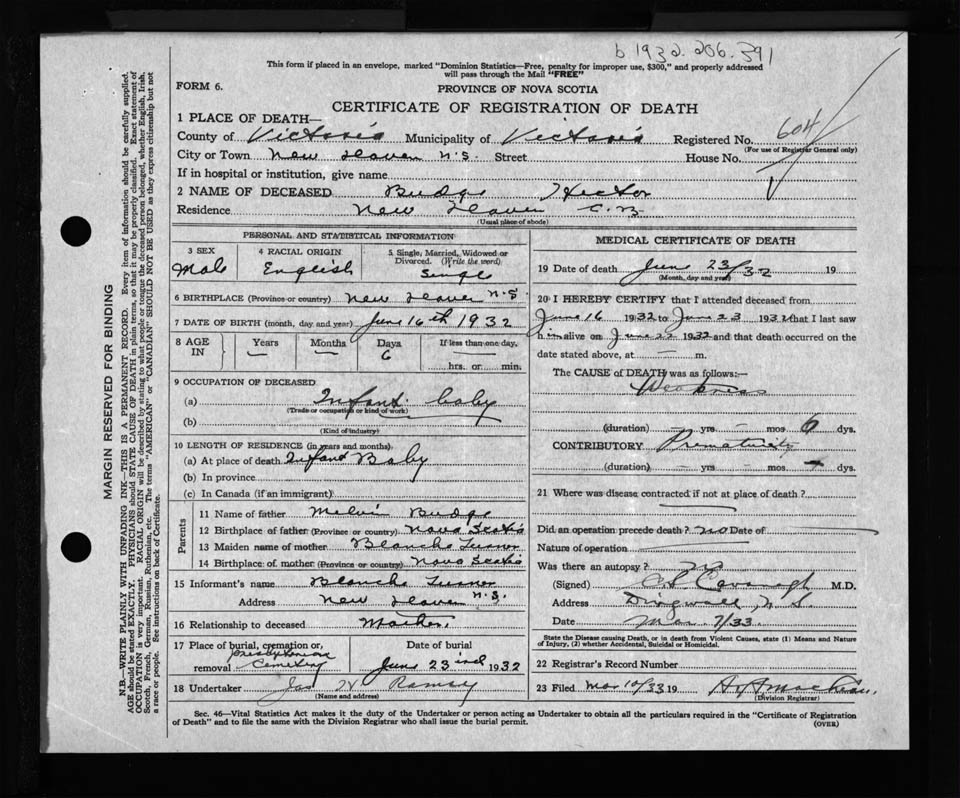 b 1932. 206. 391
This form if placed in an envelope, marked "Dominion Statistics—Free, penalty for improper use, $300," and properly addressed
will pass through the Mail "FREE"
FORM 6.
PROVINCE OF NOVA SCOTIA
CERTIFICATE OF REGISTRATION OF DEATH
1 PLACE OF DEATH—
County of Victoria Municipality of Victoria Registered No. 604
(For use of Registrar General only)
City or Town New Haven N.S. Street House No.
If in hospital or institution, give name
2 NAME OF DECEASED Budge Hector
Residence New Haven C.B.
(Usual place of abode)
PERSONAL AND STATISTICAL INFORMATION
3 SEX
Male
4 RACIAL ORIGIN
English
5 Single, Married, Widowed or
Divorced. (Write the word)
Single
6 BIRTHPLACE (Province or country) New Haven N.S.
7 DATE OF BIRTH (month, day and year) June 16th 1932
8 AGE
IN
Years
—
Months
—
Days
6
If less than one day,
hrs. or min.
9 OCCUPATION OF DECEASED
(a) Infant baby
(Trade or occupation or kind of work)
(b)
(Kind of industry)
10 LENGTH OF RESIDENCE (in years and months)
(a) At place of death Infand Baby
(b) In province
(c) In Canada (if an immigrant)
Parents
11 Name of father Melvi Budge
12 Birthplace of father (Province or country) Nova Scotia
13 Maiden name of mother Blanch Turner
14 Birthplace of mother (Province or country) Nova Scotia
15 Informant's name Blanch Turner
Address New Haven N.S.
16 Relationship to deceased Mother
17 Place of burial, cremation or
removal Presbyterian
Cemetery
Date of burial
June 23 1932
18 Undertaker Jas Ramsey
(Name and address)
MEDICAL CERTIFICATE OF DEATH
19 Date of death June 23/32 19
(Month, day and year)
20 I HEREBY CERTIFY that I attended deceased from
June 16 1932 to June 23 1932 that I last saw
h im alive on June 22 1932 and that death occurred on the
date stated above, at — m.
The CAUSE of DEATH was as follows:—
Weakness
(duration) yrs — mos 6 dys.
CONTRIBUTORY Prematurity
(duration) — yrs — mos dys.
21 Where was disease contracted if not at place of death?
Did an operation precede death? no Date of
Nature of operation
Was there an autopsy? no
(Signed) Cavanagh M.D.
Address Dingwall, N.S.
Date Mar 7/33.
State the Disease causing Death, or in death from Violent Causes, state (1) Means and Nature
of Injury, (2) whether Accidental, Suicidal or Homicidal.
22 Registrar's Record Number
23 Filed Mar 10/33 19
(Division Registrar)
Sec. 46—Vital Statistics Act makes it the duty of the Undertaker or person acting as Undertaker to obtain all the particulars required in the "Certificate of Registration
of Death" and to file the same with the Division Registrar who shall issue the burial permit.
(OVER)
MARGIN RESERVED FOR BINDING
N.B.—WRITE PLAINLY WITH UNFADING INK—THIS IS A PERMANENT RECORD. Every item of information should be carefully supplied.
AGE should be stated EXACTLY. PHYSICIANS should STATE CAUSE OF DEATH in plain terms, so that it may be properly classified. Exact statement of
OCCUPATION is very important. RACIAL ORIGIN will be described by stating to what people or tongue the deceased person belonged, whether English, Irish,
Scotch, French, German, Russian, Ruthenian, etc. The terms "AMERICAN" or "CANADIAN" SHOULD NOT BE USED as they express citizenship but not
a race or people. See instructions on back of Certificate.